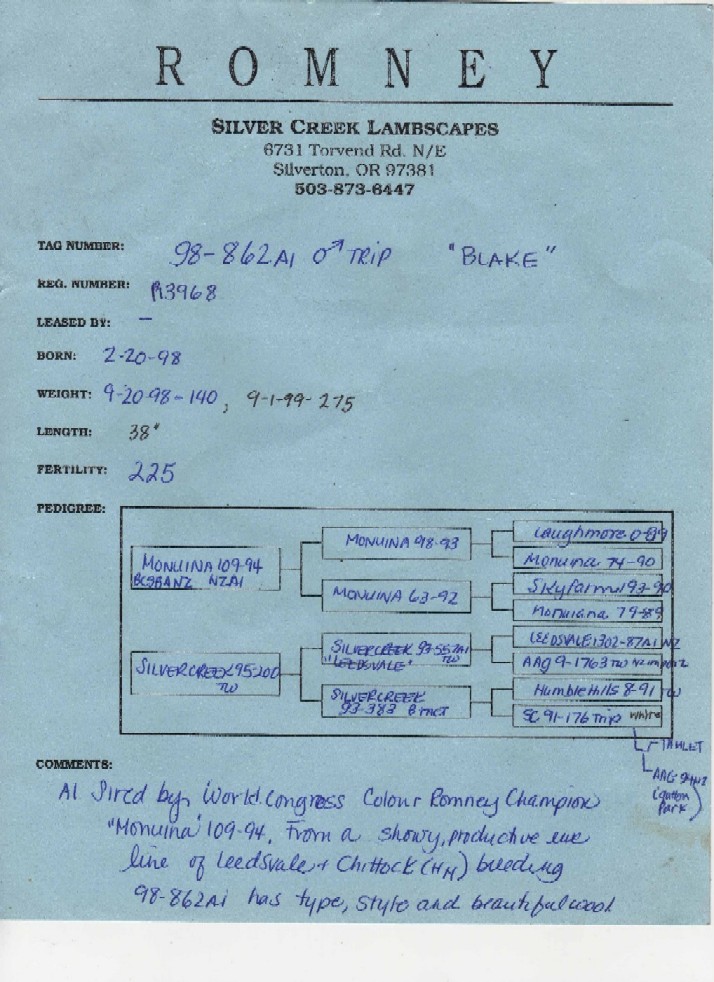 ROMNEY
SILVER CREEK LAMBSCAPES
6731 Torvend Rd. N/E
Silverton, OR 97381
503-873-6447
TAG NUMBER: 98-862AI ♂ TRIP "BLAKE"
REG. NUMBER: R3968
LEASED BY: —
BORN: 2-20-98
WEIGHT: 9-20-98-140, 9-1-99-275
LENGTH: 38"
FERTILITY: 225
PEDIGREE:
MONUINA 109-94
NZAI
MONUINA 98-93
Laughmore 0-89
Monuina 74-90
MONUINA 63-92
Skyfarm 193-90
Monuiana 79-89
SILVERCREEK 95-200
TW
SILVERCREEK 93-557AI
"LEEDSVALE" TW
LEEDSVALE 1302-87AI NZ
AAg 9-1763 TW NZ
SILVERCREEK
93-383
Humble Hills 8-91 TW
SC 91-176 Trip White
AAG
Park
COMMENTS:
AI Sired by World Congress Colour Romney Champion
"Monuina" 109-94. From a showy, productive ewe
line of Leedsvale + Chittock (HH) breeding
98-862AI has type, style and beautiful wool